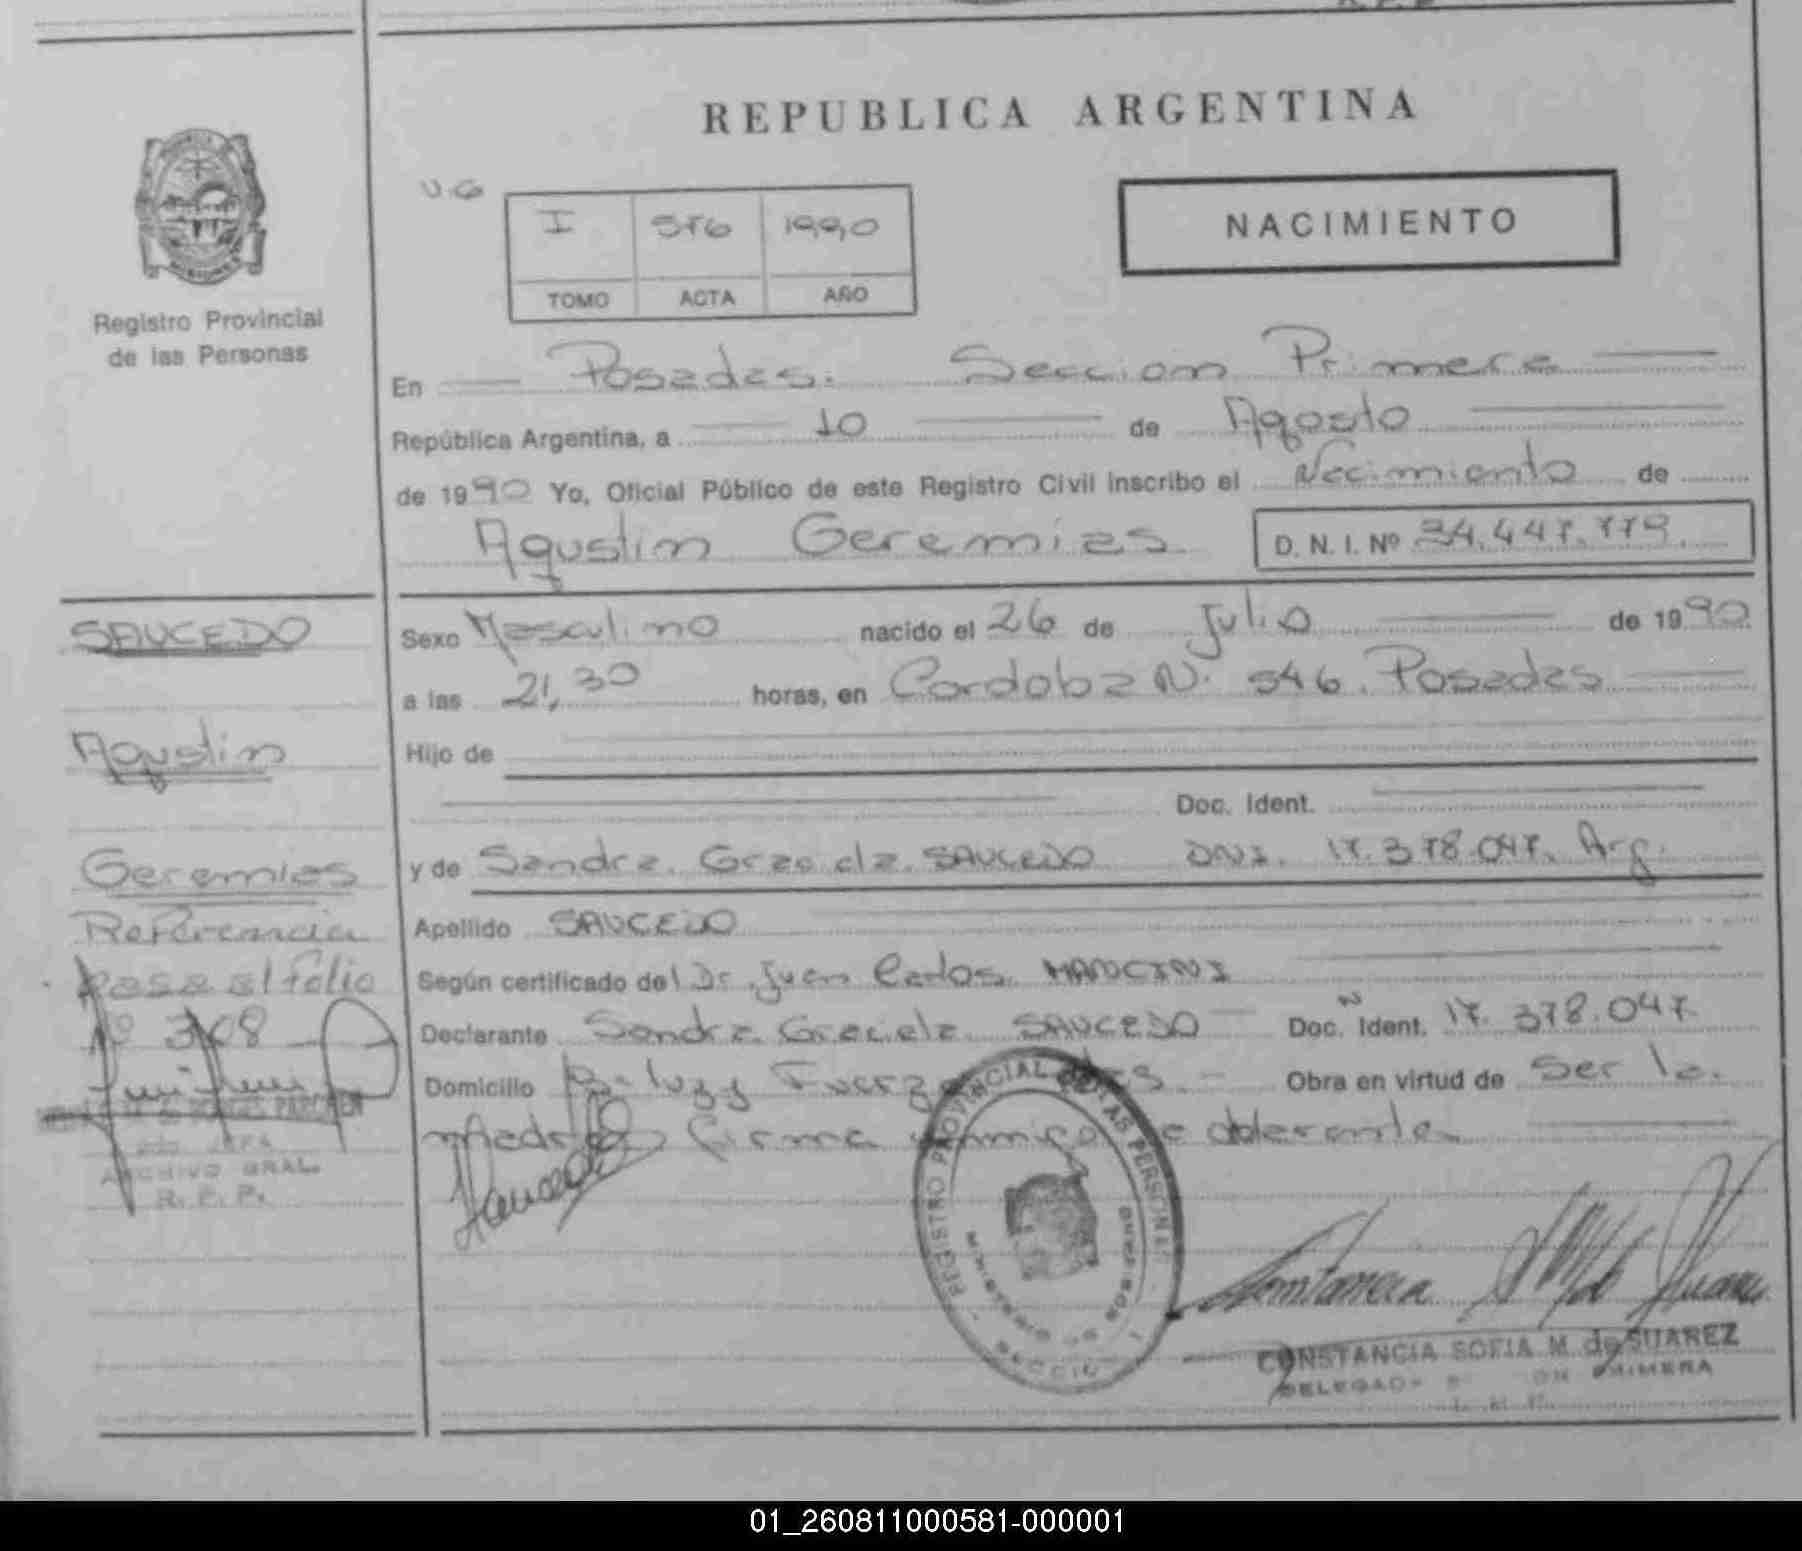 REPUBLICA ARGENTINA
U.G
I 576 1990
TOMO ACTA AÑO
NACIMIENTO
Registro Provincial
de las Personas
En Posadas. Seccion Primera
República Argentina, a 10 de Agosto
de 1990 Yo, Oficial Público de este Registro Civil inscribo el Nacimiento de
Agustin Geremias D. N. I. Nº 34.447.779.
SAUCEDO
Agustin
Geremias
Referencia
pasa al folio
Nº 308
ARCHIVO GRAL.
R. P. P.
Sexo Masculino nacido el 26 de Julio de 1990
a las 21,30 horas, en Cordoba N. 546. Posadas
Hijo de
Doc. Ident.
y de Sandra Graciela SAUCEDO DNI. 17.378.047. Arg.
Apellido SAUCEDO
Según certificado del Dr. Juan Carlos MANCINI
Declarante Sandra Graciela SAUCEDO Doc. Ident. N 17.378.047
Domicilio Obra en virtud de Ser la
madre firma
REGISTRO PROVINCIAL DE LAS PERSONAS
MINISTERIO DE GOBIERNO
CONSTANCIA SOFIA M. de SUAREZ
PRIMERA
01_260811000581-000001